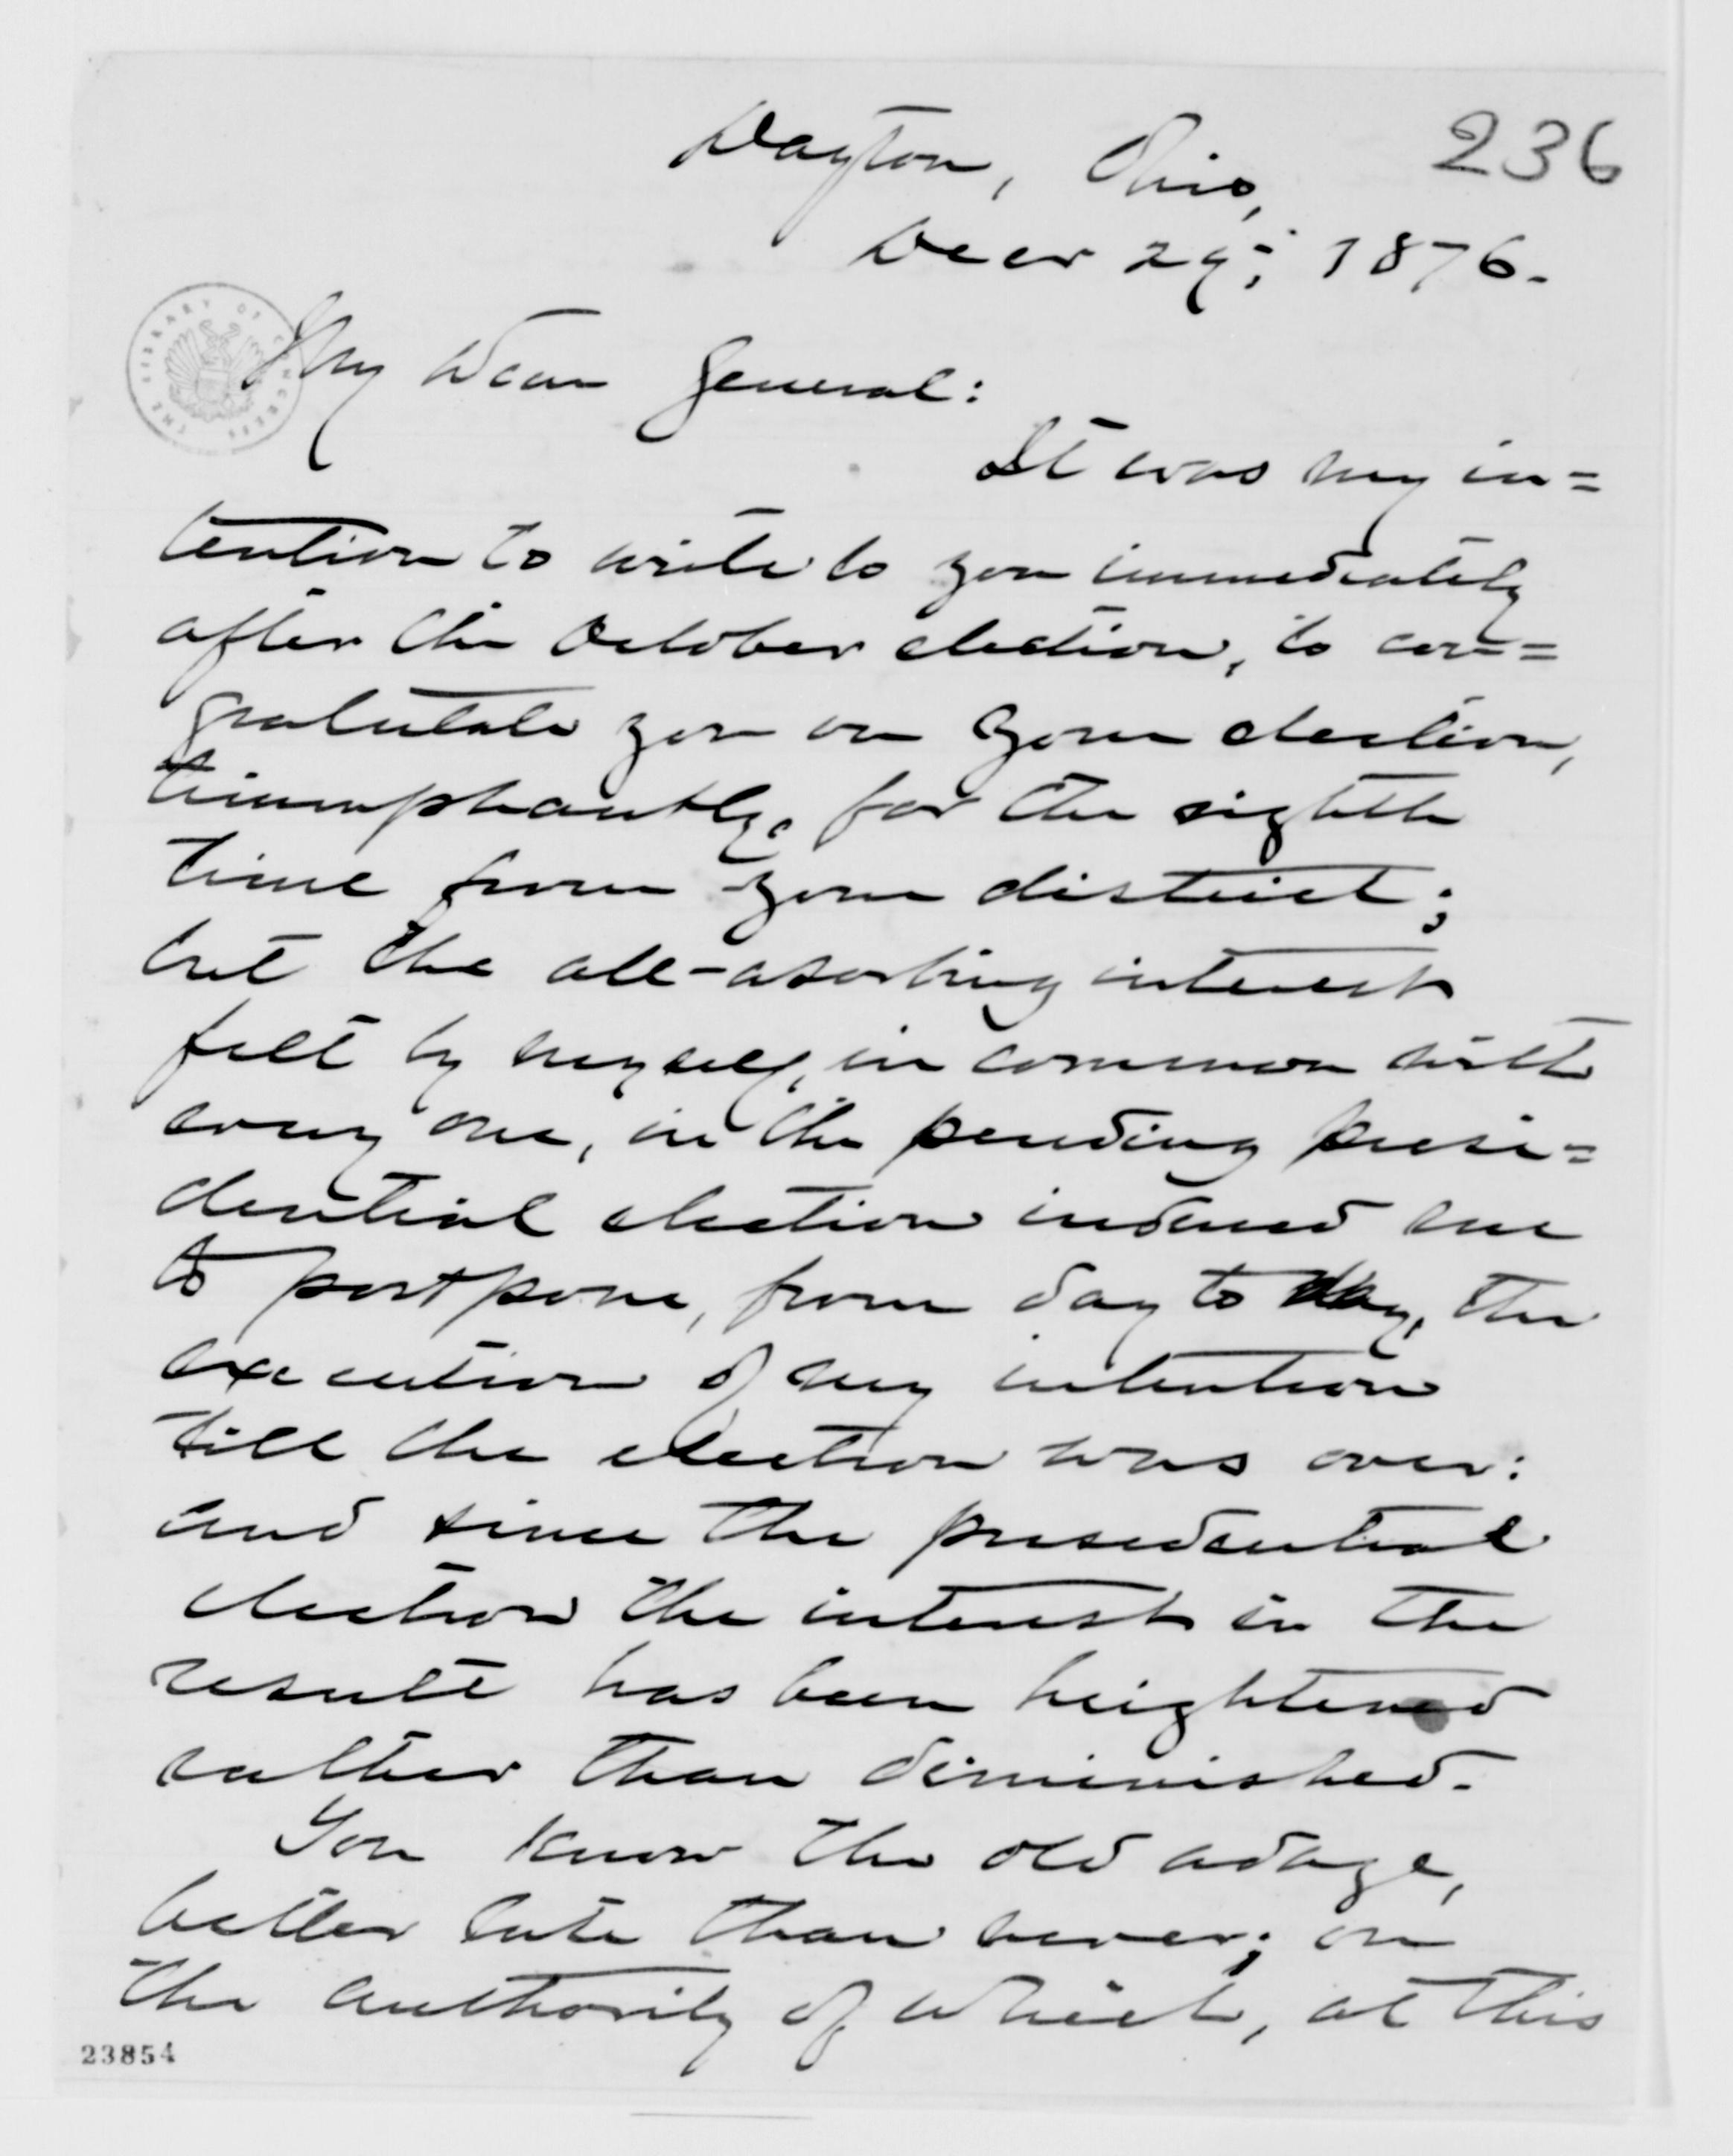 236
Dayton, Ohio,
Decr 29; 1876.
My Dear General:
It was my in=
tention to write to you immediately
after the October election, to con==
gratulate you on your election,
triumphantly, for the eighth
time from your district;
but the all-absorbing interest
felt by myself, in common with
every one, in the pending presi=
dential election induced me
to postpone, from day to day, the
execution of my intention
till the election was over:
and since the presidential
election the interest in the
result has been heightened
rather than diminished.
You know the old adage,
better late than never; on
the authority of which, at this
23854
THE LIBRARY OF CONGRESS